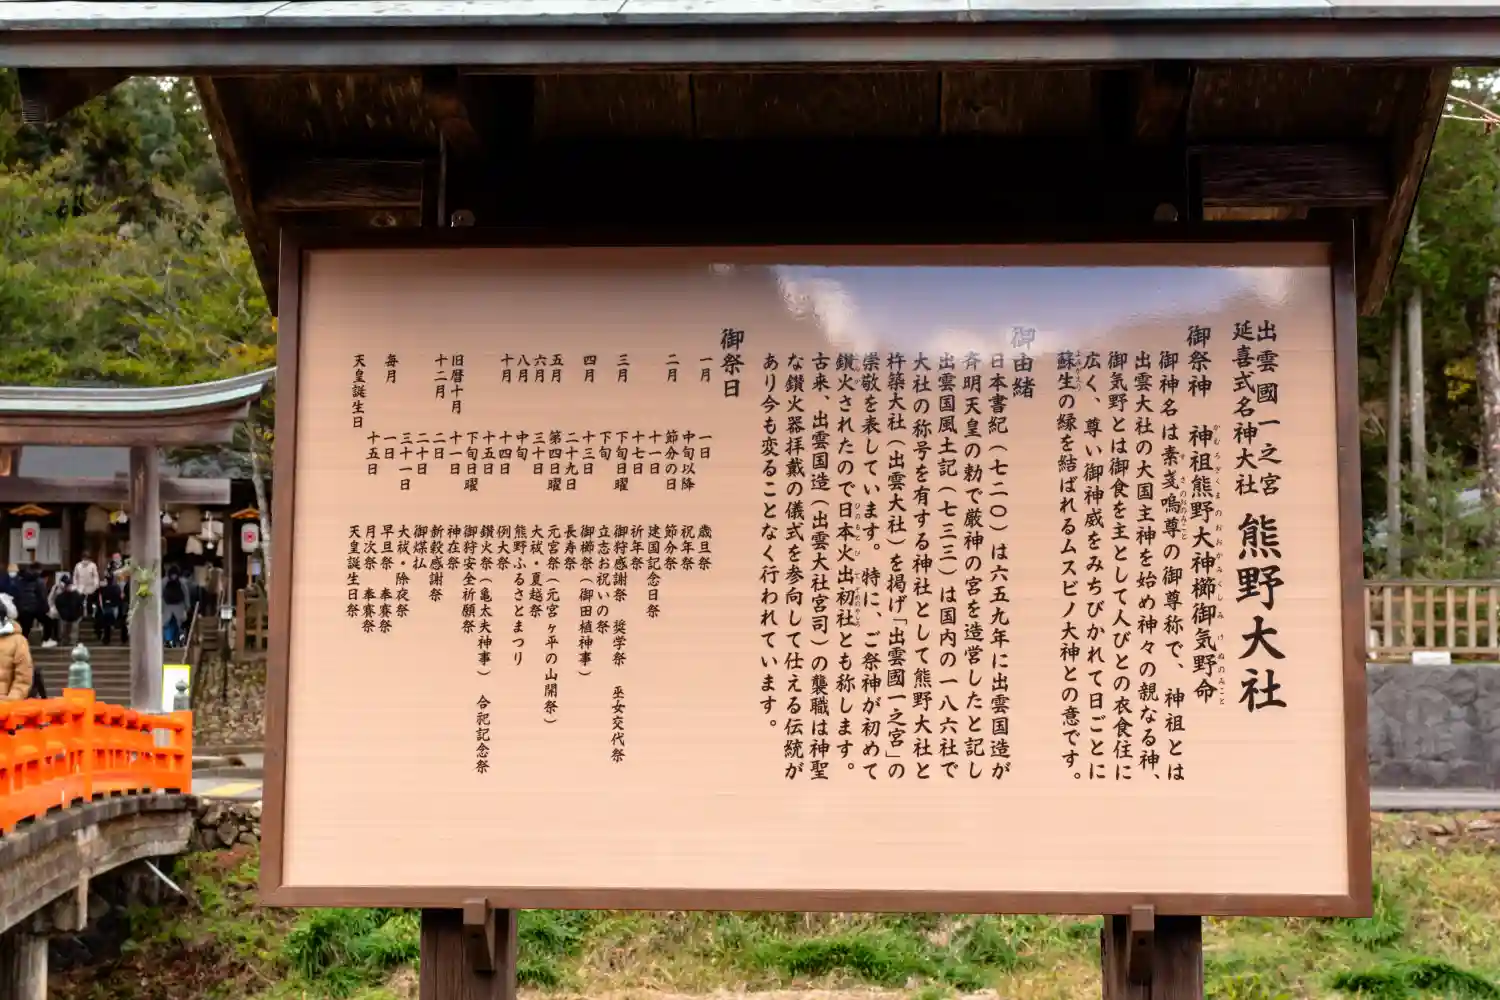 出雲國一之宮
延喜式名神大社
熊野大社
御祭神 神祖熊野大神櫛御気野命
かむろぎくまのおおかみくしみけぬのみこと
御神名は素戔嗚尊の御尊称で、神祖とは
すさのおのみこと
出雲大社の大国主神を始め神々の親なる神、
御気野とは御食を主として人びとの衣食住に
広く、尊い御神威をみちびかれて日ごとに
蘇生の縁を結ばれるムスビノ大神との意です。
御由緒
日本書紀(七二〇)は六五九年に出雲国造が
斉明天皇の勅で厳神の宮を造営したと記し
出雲国風土記(七三三)は国内の一八六社で
大社の称号を有する神社として熊野大社と
杵築大社(出雲大社)を掲げ「出雲國一之宮」の
崇敬を表しています。特に、ご祭神が初めて
鑽火されたので日本火出初社とも称します。
ひのもとひでぞめのやしろ
古来、出雲国造(出雲大社宮司)の襲職は神聖
な鑽火器拝戴の儀式を参向して仕える伝統が
あり今も変ることなく行われています。
御祭日
一月 一日 歳旦祭
中旬以降 祝年祭
二月 節分の日 節分祭
十一日 建国記念日祭
十七日 祈年祭
三月 下旬日曜 御狩感謝祭 奨学祭 巫女交代祭
下旬 立志お祝いの祭
四月 十三日 御櫛祭(御田植神事)
二十九日 長寿祭
五月 第四日曜 元宮祭(元宮ヶ平の山開祭)
六月 三十日 大祓・夏越祭
八月 中旬 熊野ふるさとまつり
十月 十四日 例大祭
十五日 鑽火祭(亀太夫神事) 合祀記念祭
下旬日曜 御狩安全祈願祭
旧暦十月 十一日 神在祭
十二月 二日 新穀感謝祭
二十日 御煤払
三十一日 大祓・除夜祭
毎月 一日 早旦祭 奉賽祭
十五日 月次祭 奉賽祭
天皇誕生日 天皇誕生日祭